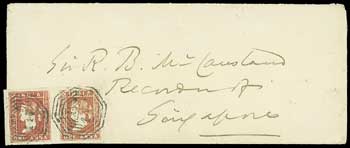 Sir R. B. McCausland
Recorder of
Singapore